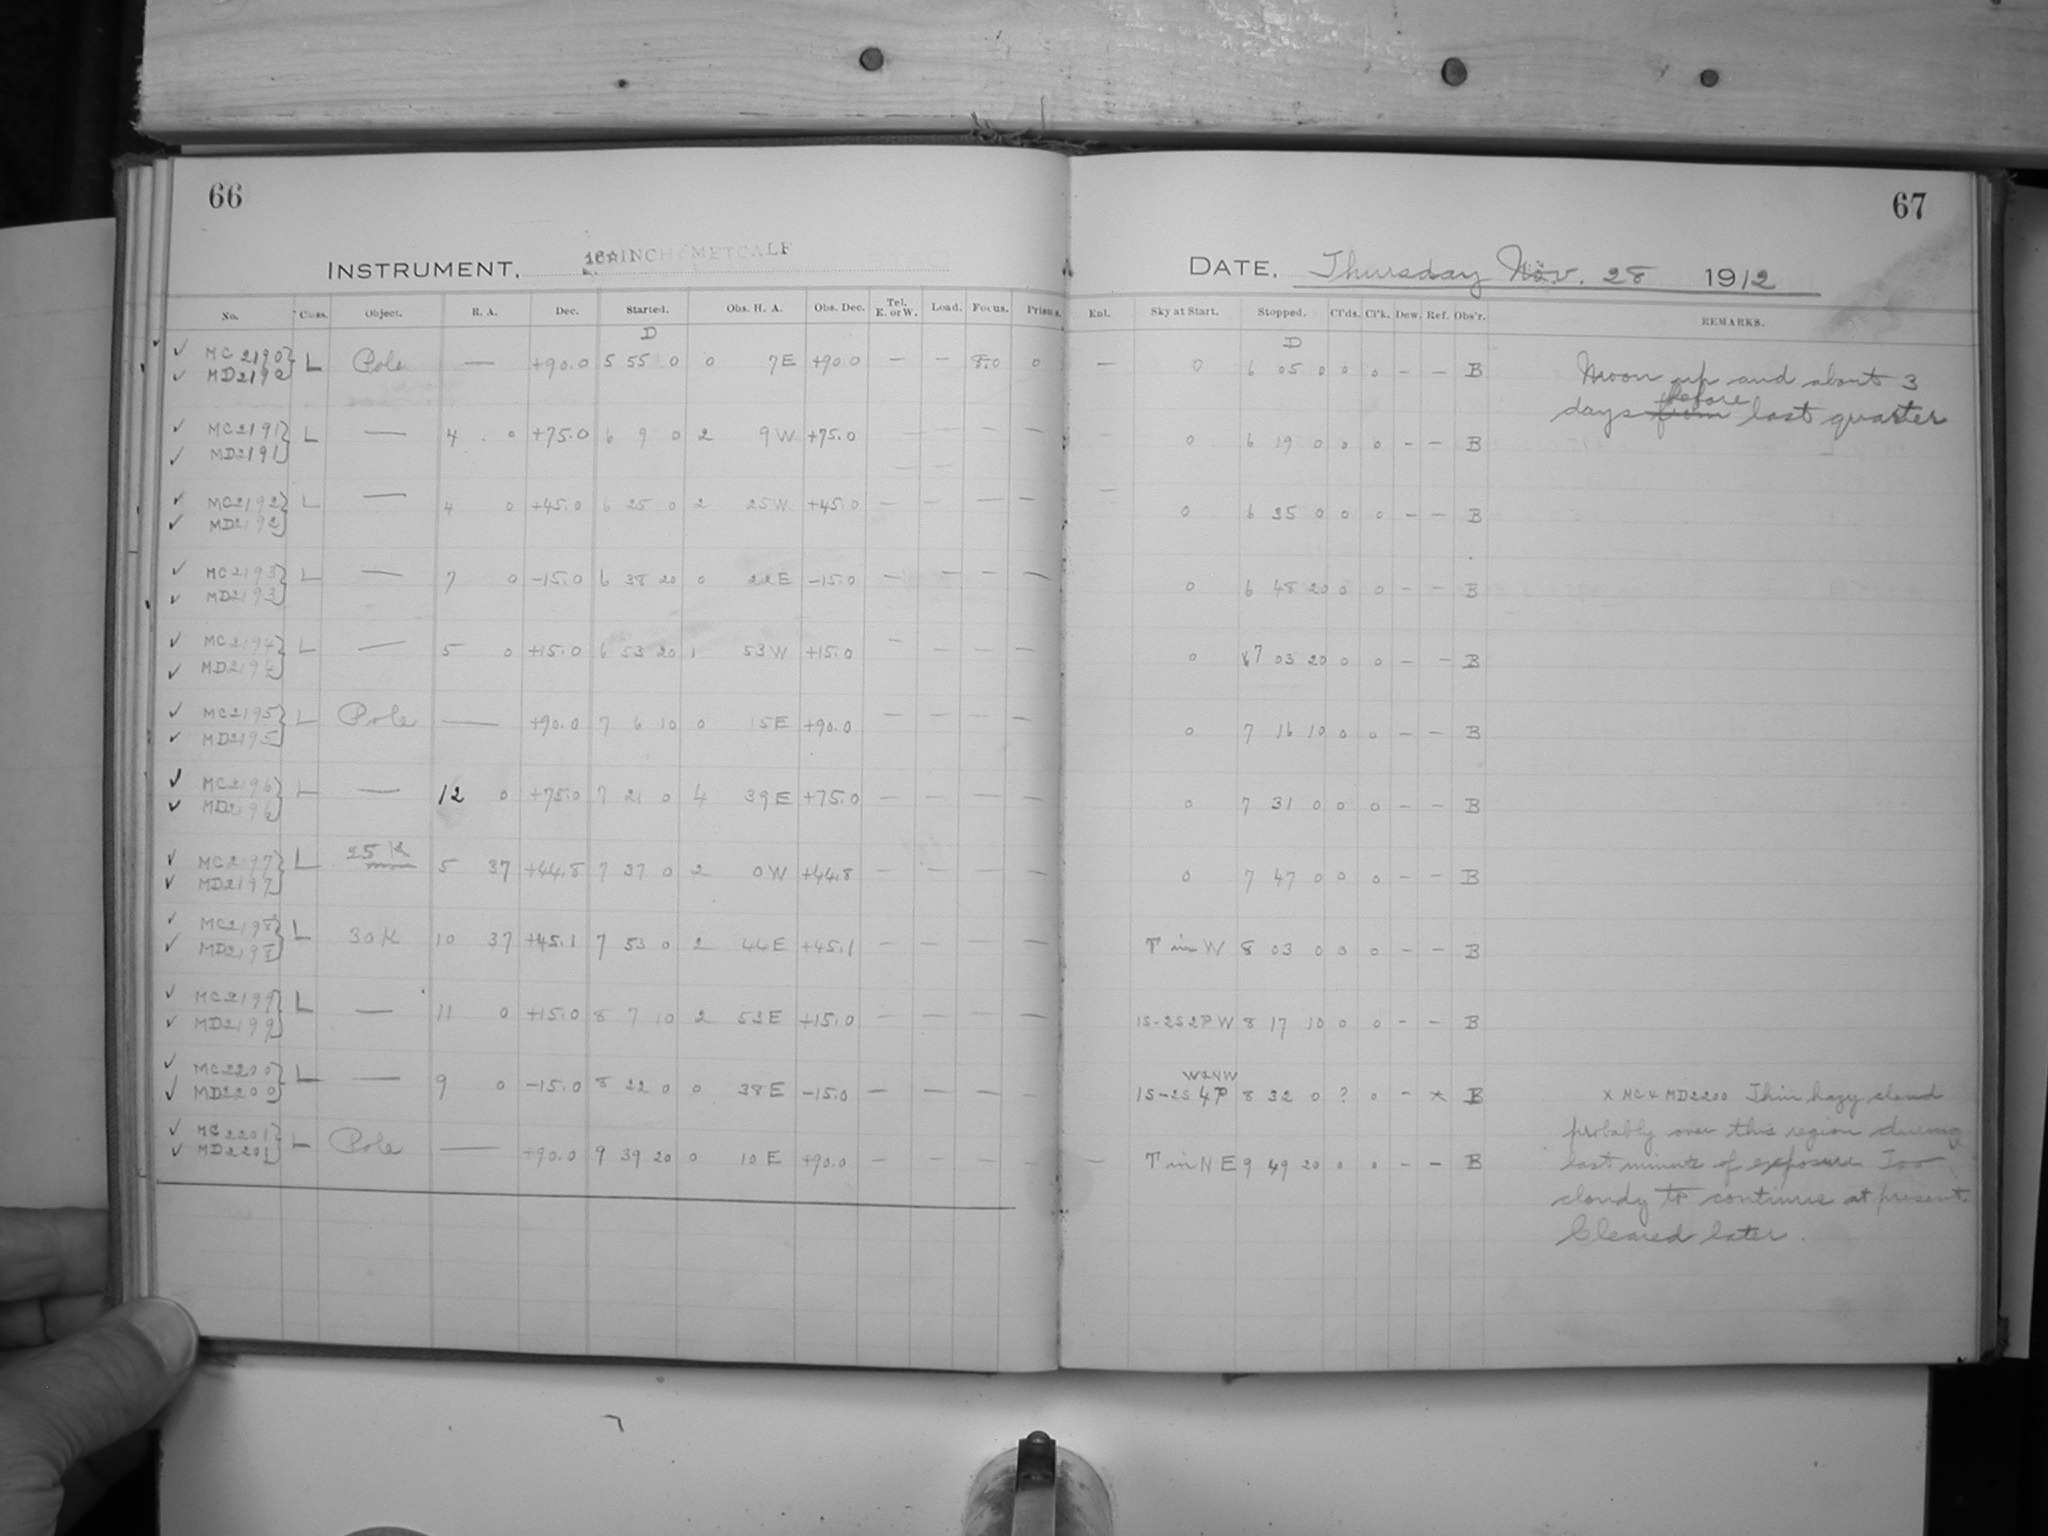 66
INSTRUMENT. 16 INCH METCALF
No. Class. Object. R. A. Dec. Started. Obs. H. A. Obs. Dec. Tel. E. or W. Load. Focus. Prisms.
D
✓ MC2190 } L Pole — +90.0 5 55 0 0 7E +90.0 — — 8.0 0
✓ MD2190
✓ MC2191 } L — 4 0 +75.0 6 9 0 2 9W +75.0 — — — —
✓ MD2191 — —
✓ MC2192 } L — 4 0 +45.0 6 25 0 2 25W +45.0 — — — —
✓ MD2192
✓ MC2193 } L — 7 0 -15.0 6 38 20 0 22E -15.0 — — — —
✓ MD2193
✓ MC2194 } L — 5 0 +15.0 6 53 20 1 53W +15.0 — — — —
✓ MD2194
✓ MC2195 } L Pole — +90.0 7 6 10 0 15E +90.0 — — — —
✓ MD2195
✓ MC2196 } L — 12 0 +75.0 7 21 0 4 39E +75.0 — — — —
✓ MD2196
✓ MC2197 } L 25 K 5 37 +44.8 7 37 0 2 0W +44.8 — — — —
✓ MD2197
✓ MC2198 } L 30K 10 37 +45.1 7 53 0 2 44E +45.1 — — — —
✓ MD2198
✓ MC2199 } L — 11 0 +15.0 8 7 10 2 53E +15.0 — — — —
✓ MD2199
✓ MC2200 } L — 9 0 -15.0 8 22 0 0 38E -15.0 — — — —
✓ MD2200
✓ MC2201 } L Pole — +90.0 9 39 20 0 10E +90.0 — — — —
✓ MD2201
67
DATE. Thursday Nov. 28 1912
Enl. Sky at Start. Stopped. Cl'ds. Cl'k. Dew. Ref. Obs'r. REMARKS.
D
— 0 6 05 0 0 0 — — B Moon up and about 3
before
days from last quarter
0 6 19 0 0 0 — — B
— 0 6 35 0 0 0 — — B
0 6 48 20 0 0 — — B
0 7 03 20 0 0 — — B
0 7 16 10 0 0 — — B
0 7 31 0 0 0 — — B
0 7 47 0 0 0 — — B
T in W 8 03 0 0 0 — — B
1S-2S 2P W 8 17 10 0 0 — — B
W&NW
1S-2S 4P 8 32 0 ? 0 — x B x MC & MD2200 Thin hazy cloud
probably over this region during
— T in NE 9 49 20 0 0 — — B last minute of exposure Too
cloudy to continue at present.
Cleared later.